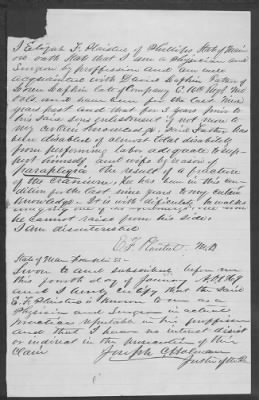 I Elijah F. Plaisted of Phillips State of Maine
on oath state that I am a Physician and
Surgeon by proffession and am well
acquainted with David Laphin Father of
Laphin late of Company Regt Me
Vols and have been for the last nine
years past and that for 5 years prior to
his said sons enlistment of not more to
my certain knowledge said Father has
been afflicted of almost total disability
from performing labor adequate to supp
port himself and wife by reason of
Paraplegia the result of a fracture
of the He has been in this con
dition for the last nine years to my certain
knowledge It is with difficulty he walks
using
he cannot raise from his side.
I am disinterested
E. F. Plaisted M.D.
State of Maine Franklin SS
Sworn to and subscribed before me
this fourth day of January A.D.
and I hereby certify that the said
E. F. Plaisted is known to me as a
Physician and Surgeon in active
practice reputable in his proffesion
and that I have no interest direct
or indirect in the prosecution of this
Claim
Joseph
Justice of the